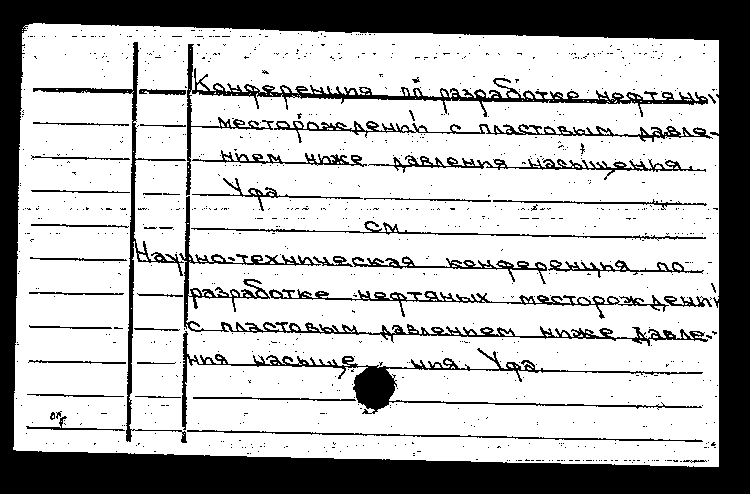 Конференция по разработке нефтяны
месторождений с пластовым давле-
нием ниже давления насыщения.
Уфа.
см.
Научно-техническая конференция по
разработке нефтяных месторождений
с пластовым давлением ниже давле-
ния насыще ния. Уфа.